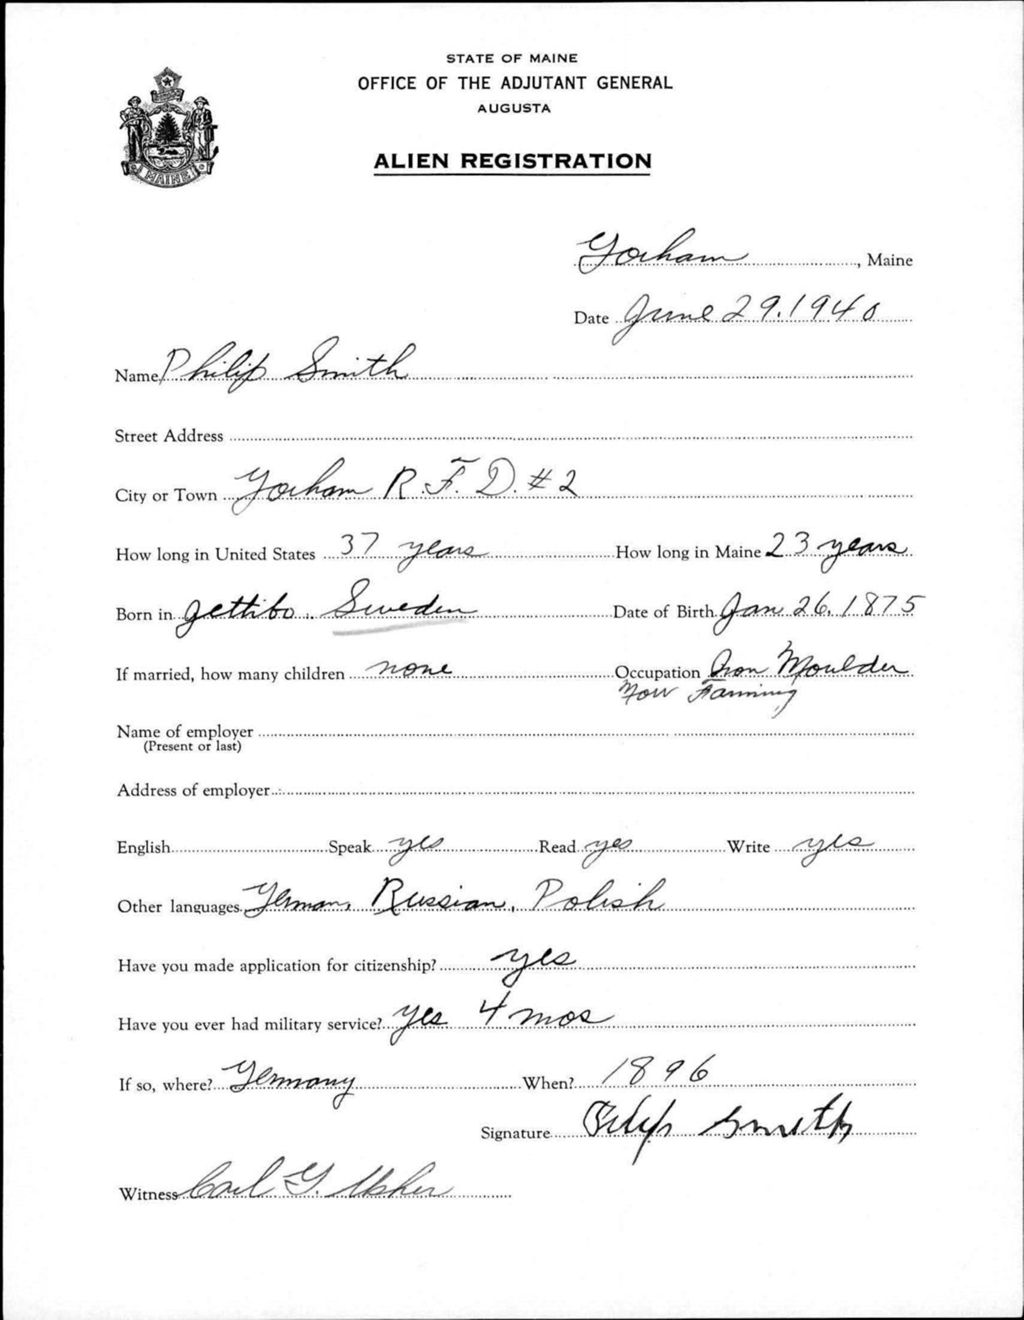 STATE OF MAINE
OFFICE OF THE ADJUTANT GENERAL
AUGUSTA
ALIEN REGISTRATION
MAINE
Gorham, Maine
Date June 29, 1940
Name Philip Smith
Street Address
City or Town Gorham R.F.D. #2
How long in United States 37 years How long in Maine 23 years
Born in Gettibo, Sweden Date of Birth Jan 26, 1875
If married, how many children none Occupation Iron Moulder
Now Farming
Name of employer
(Present or last)
Address of employer
English Speak yes Read yes Write yes
Other languages German, Russian, Polish
Have you made application for citizenship? yes
Have you ever had military service? yes 4 mos
If so, where? Germany When? 1896
Signature Smith
Witness Carl G. Usher